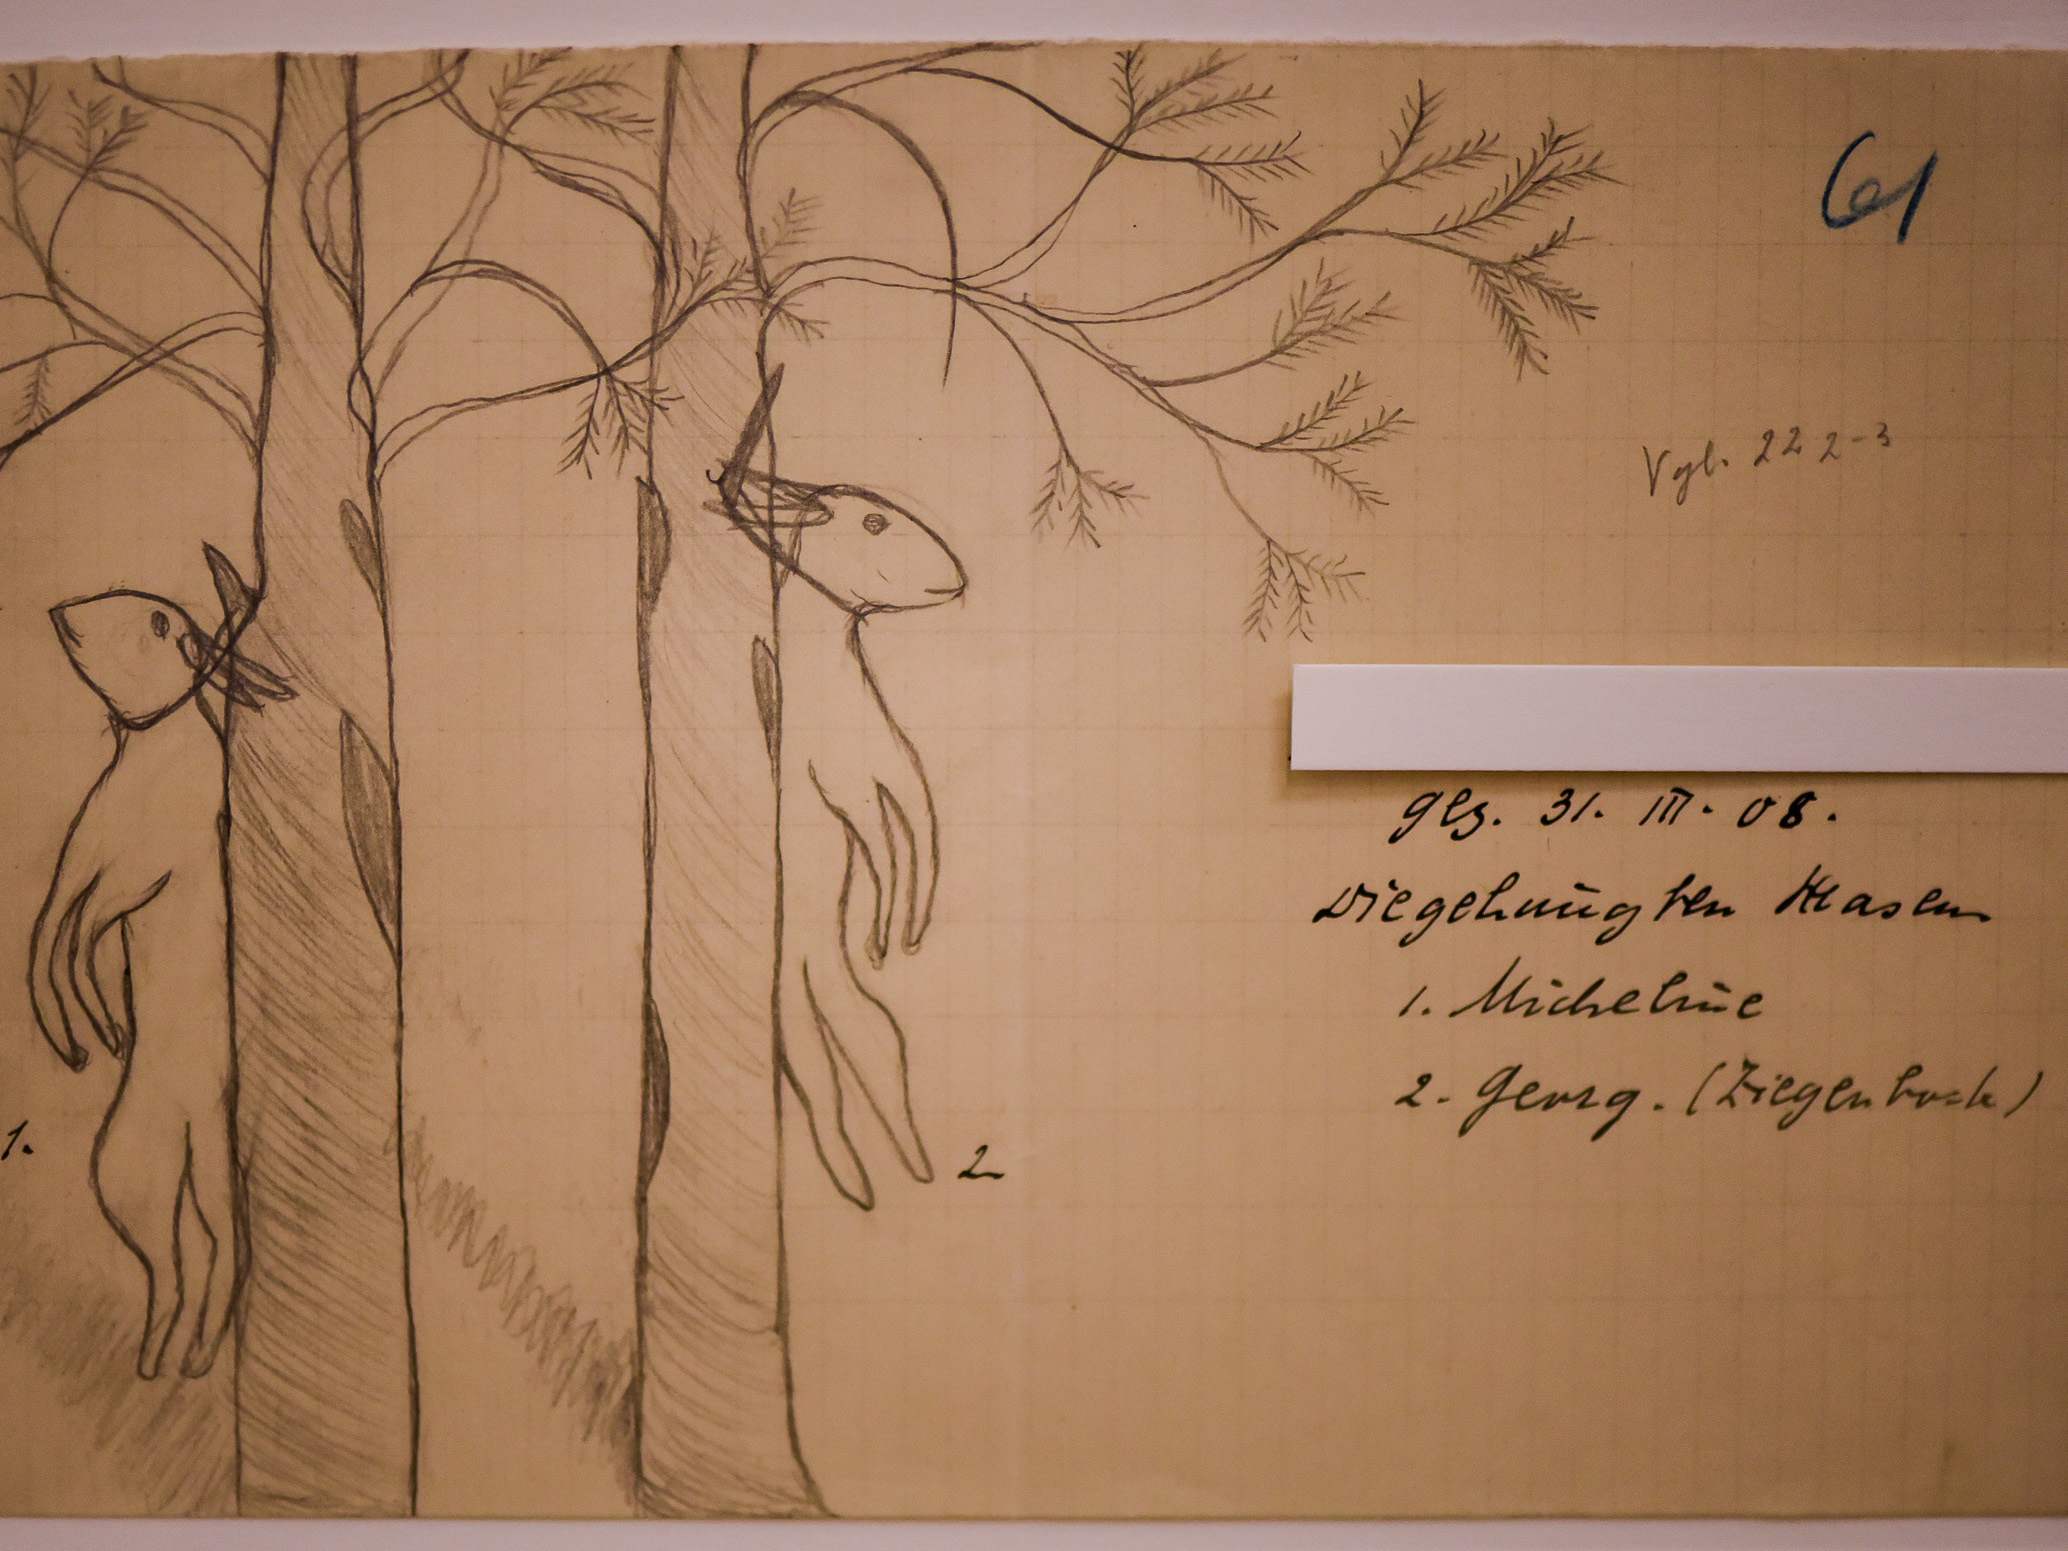 61
Vgl. 22 2-3
gez. 31. III. 08.
Hasen
1. Micheline
2. Georg. (Ziegenbock)
1.
2